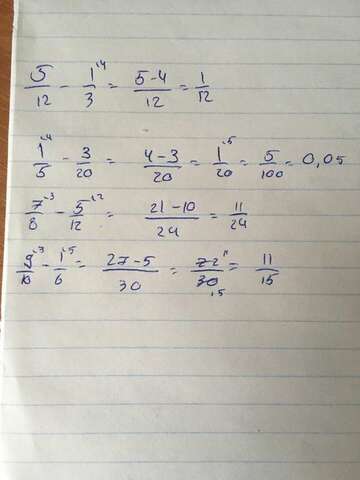 5/12 - 1·4/3 = 5-4/12 = 1/12
1·4/5 - 3/20 = 4-3/20 = 1·5/20 = 5/100 = 0,05
7·3/8 - 5·2/12 = 21-10/24 = 11/24
9·3/10 - 1·5/6 = 27-5/30 = 22 11/30 15 = 11/15